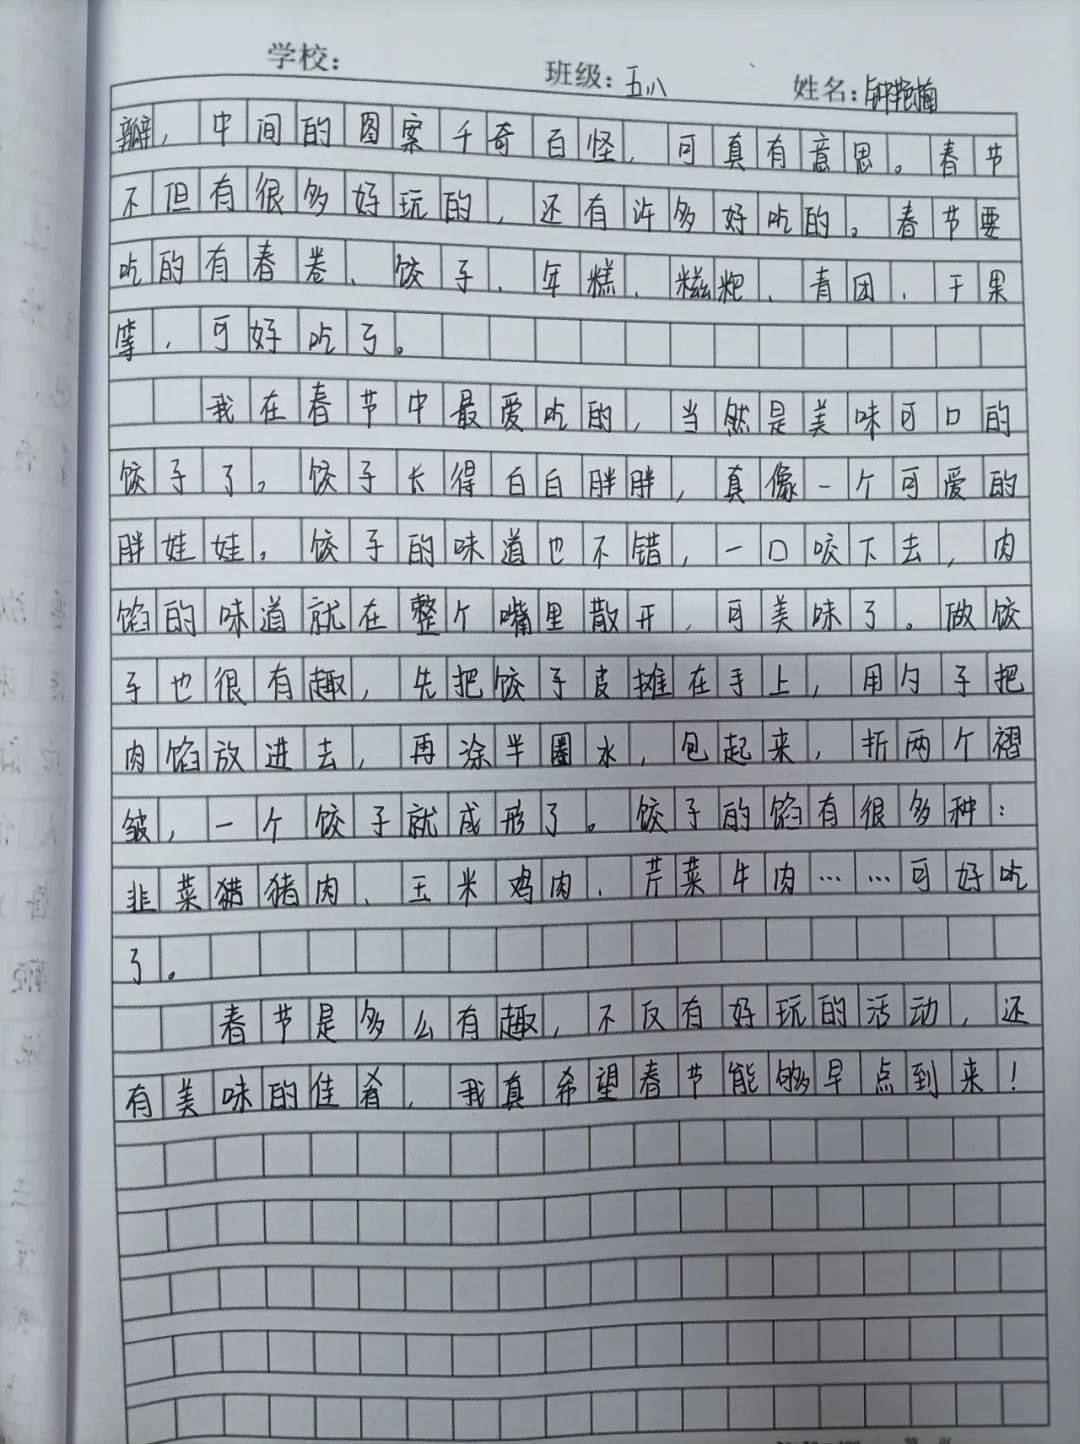 学校：
班级：五八
姓名：
瓣，中间的图案千奇百怪，可真有意思。春节
不但有很多好玩的，还有许多好吃的。春节要
吃的有春卷、饺子、年糕、糍粑、青团、干果
等，可好吃了。
我在春节中最爱吃的，当然是美味可口的
饺子了。饺子长得白白胖胖，真像一个可爱的
胖娃娃。饺子的味道也不错，一口咬下去，肉
馅的味道就在整个嘴里散开，可美味了。做饺
子也很有趣，先把饺子皮摊在手上，用勺子把
肉馅放进去，再涂半圈水，包起来，折两个褶
皱，一个饺子就成形了。饺子的馅有很多种：
韭菜猪肉、玉米鸡肉、芹菜牛肉……可好吃
了。
春节是多么有趣，不反有好玩的活动，还
有美味的佳肴，我真希望春节能够早点到来！